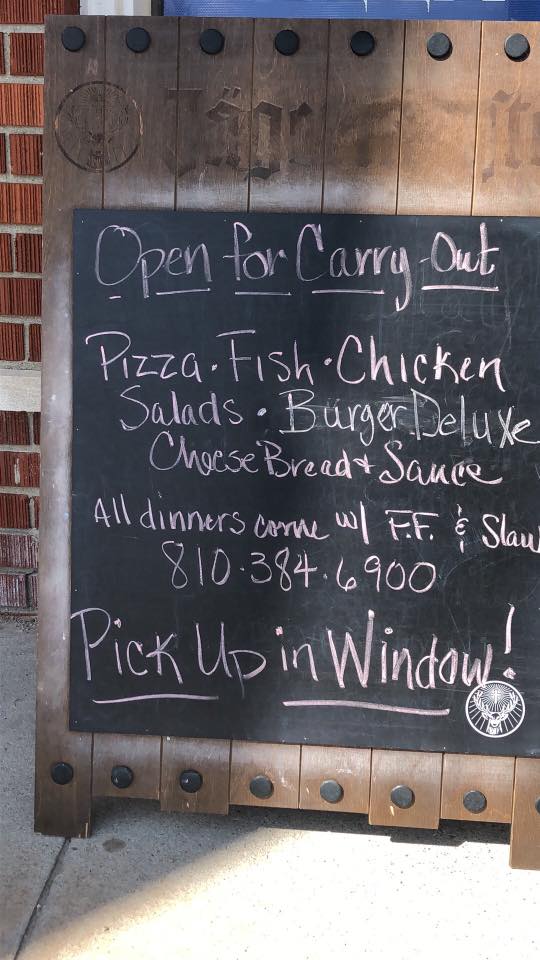 Jäge ste
Open for Carry-Out
Pizza · Fish · Chicken
Salads · Burger Deluxe
Cheese Bread + Sauce
All dinners come w/ F.F. & Slaw
810·384·6900
Pick Up in Window!